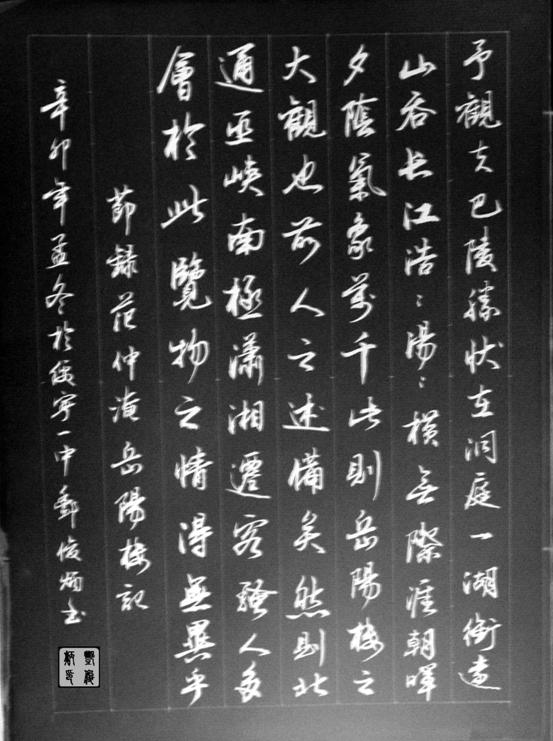 予觀夫巴陵勝狀在洞庭一湖銜遠
山吞長江浩浩湯湯橫無際涯朝暉
夕陰氣象萬千此則岳陽樓之
大觀也前人之述備矣然則北
通巫峽南極瀟湘遷客騷人多
會於此覽物之情得無異乎
節錄范仲淹岳陽樓記
辛卯年孟冬於綏寧一中鄭俊炳書